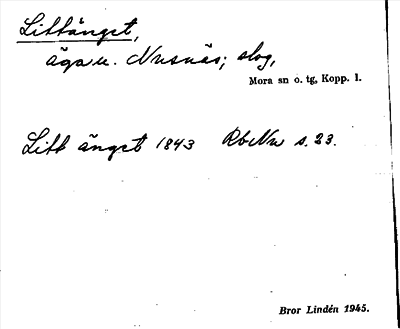 Littänget,
ägau. Nusnäs; slog,
Mora sn o. tg, Kopp. l.
Litt änget 1843 RbNu s. 23.
Bror Lindén 1945.